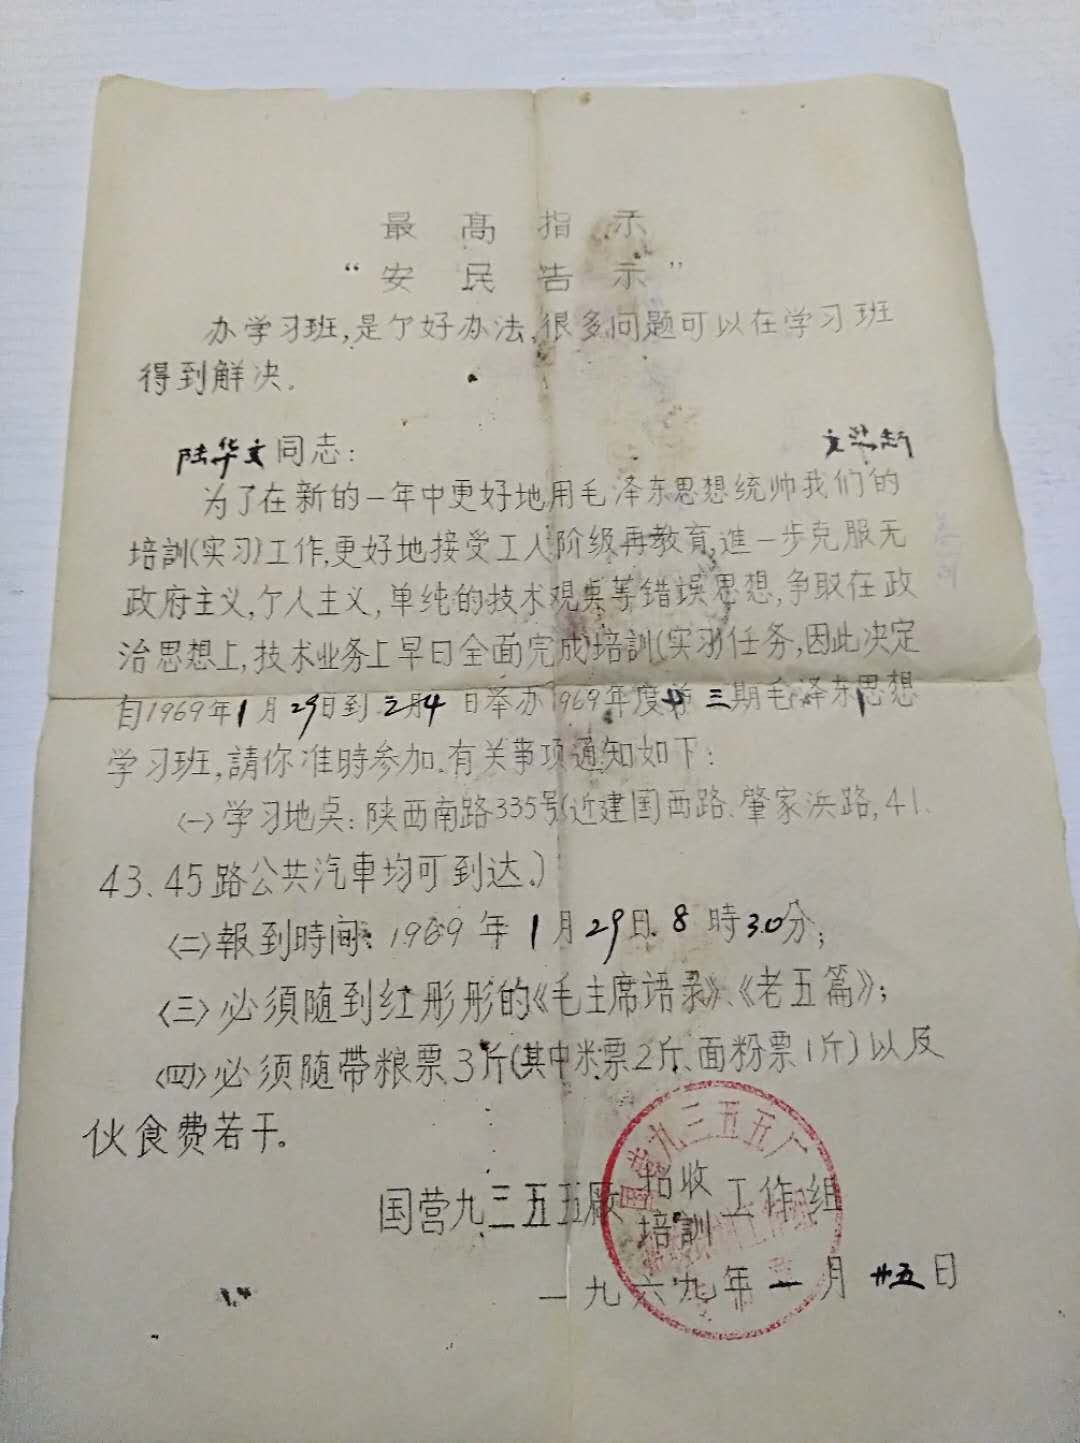 最高指示
“安民告示”
办学习班,是个好办法,很多问题可以在学习班
得到解决.
陆华文同志:
为了在新的一年中更好地用毛泽东思想统帅我们的
培訓(实习)工作,更好地接受工人阶级再教育,進一步克服无
政府主义,个人主义,单纯的技术观桌等错误思想,争取在政
治思想上,技术业务上早日全面完成培訓(实习)任务,因此决定
自1969年1月29日到二月4日举办1969年度第三期毛泽东思想
学习班,請你准時参加.有关事项通知如下:
〈一〉学习地桌:陕西南路335号(近建国西路.肇家浜路,41.
43、45路公共汽車均可到达.)
〈二〉報到時间:1969年1月29日.8時30分;
〈三〉必须随到红彤彤的《毛主席语录》、《老五篇》;
〈四〉必须随带粮票3斤(其中米票2斤、面粉票1斤)以及
伙食费若干。
国营九三五五厰招收培訓工作组
国营九三五五厂
一九六九年一月廿五日